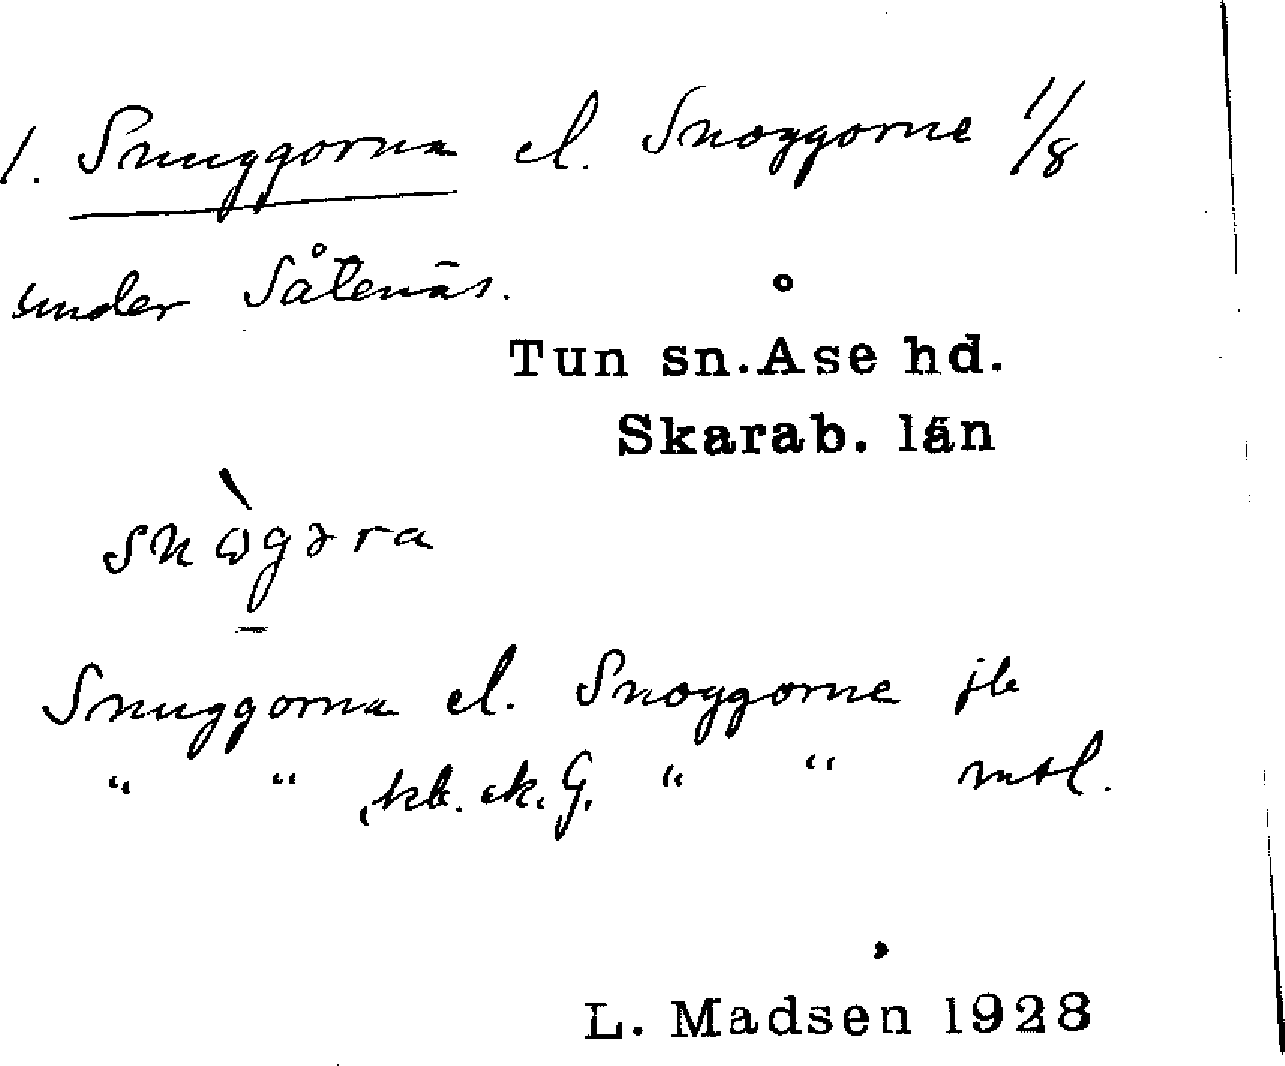 1. Snuggorna el. Snoggorne 1/8
under Såtenäs.
Tun sn. Åse hd.
Skarab. län
snògəra
Snuggorna el. Snoggorne jb
“ “ , kb. ek. G. “ “ mtl.
L. Madsen 1928